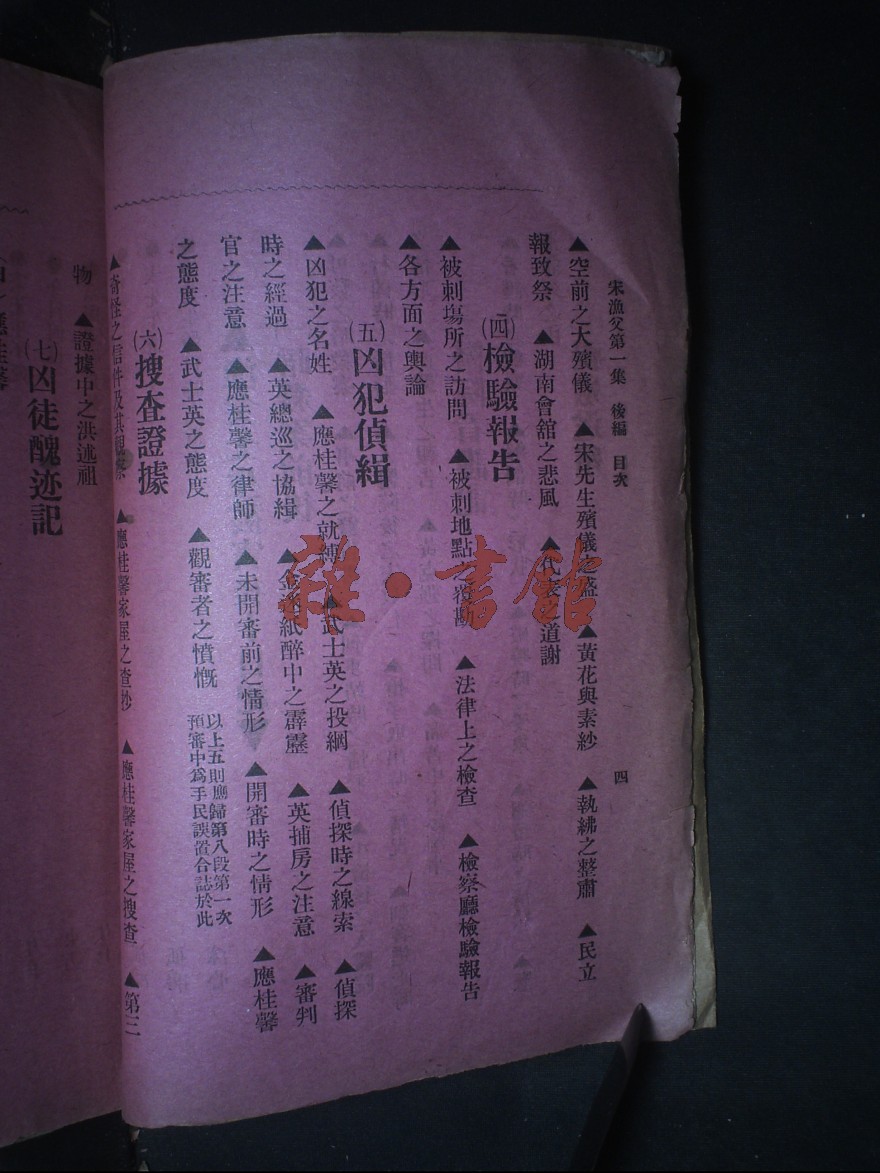 宋漁父第一集　後編　目次　四
▲空前之大殯儀　▲宋先生殯儀之盛　▲黃花與素紗　▲執紼之整肅　▲民立
報致祭　▲湖南會舘之悲風　▲代表道謝
(四)檢驗報告
▲被刺塲所之訪問　▲被刺地點之　▲法律上之檢查　▲檢察廳檢驗報告
▲各方面之輿論
(五)凶犯偵緝
▲凶犯之名姓　▲應桂馨之就縛　▲武士英之投網　▲偵探時之線索　▲偵探
時之經過　▲英總巡之協緝　▲金迷紙醉中之霹靂　▲英捕房之注意　▲審判
官之注意　▲應桂馨之律師　▲未開審前之情形　▲開審時之情形　▲應桂馨
之態度　▲武士英之態度　▲觀審者之憤慨　以上五則應歸第八段第一次
預審中爲手民誤置合誌於此
(六)搜查證據
▲奇怪之信件及其　▲應桂馨家屋之查抄　▲應桂馨家屋之搜查　▲第三
物　▲證據中之洪述祖
(七)凶徒醜迹記
雜·書舘